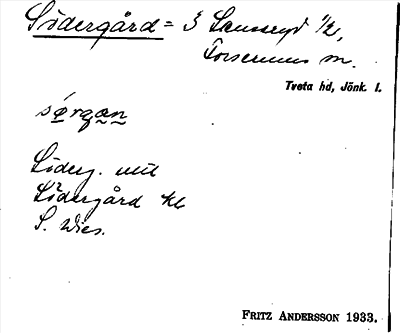 Södergård = 3 Lanseryd 1/2,
Forserums m.
Tveta hd, Jönk. l.
sǿrgan
Söderg. mtl
Södergård kb
S. dies.
FRITZ ANDERSSON 1933.